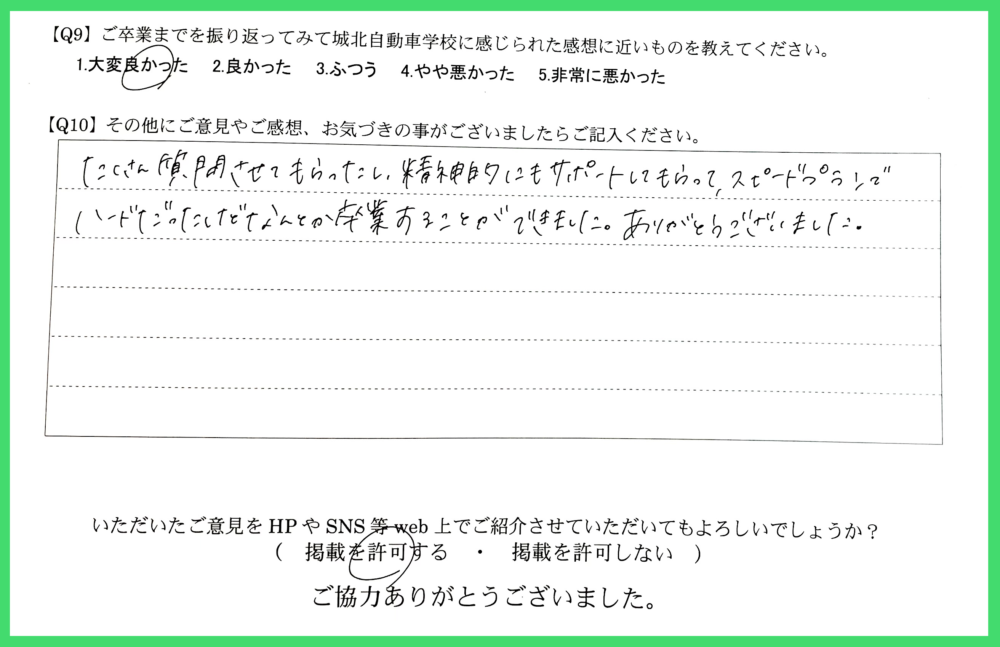 【Q9】ご卒業までを振り返ってみて城北自動車学校に感じられた感想に近いものを教えてください。
1.大変良かった 2.良かった 3.ふつう 4.やや悪かった 5.非常に悪かった
【Q10】その他にご意見やご感想、お気づきの事がございましたらご記入ください。
たくさん質問させてもらったし、精神的にもサポートしてもらって、スピードプランで
ハードだったけどなんとか卒業することができました。ありがとうございました。
いただいたご意見をHPやSNS等web上でご紹介させていただいてもよろしいでしょうか？
（ 掲載を許可する ・ 掲載を許可しない ）
ご協力ありがとうございました。